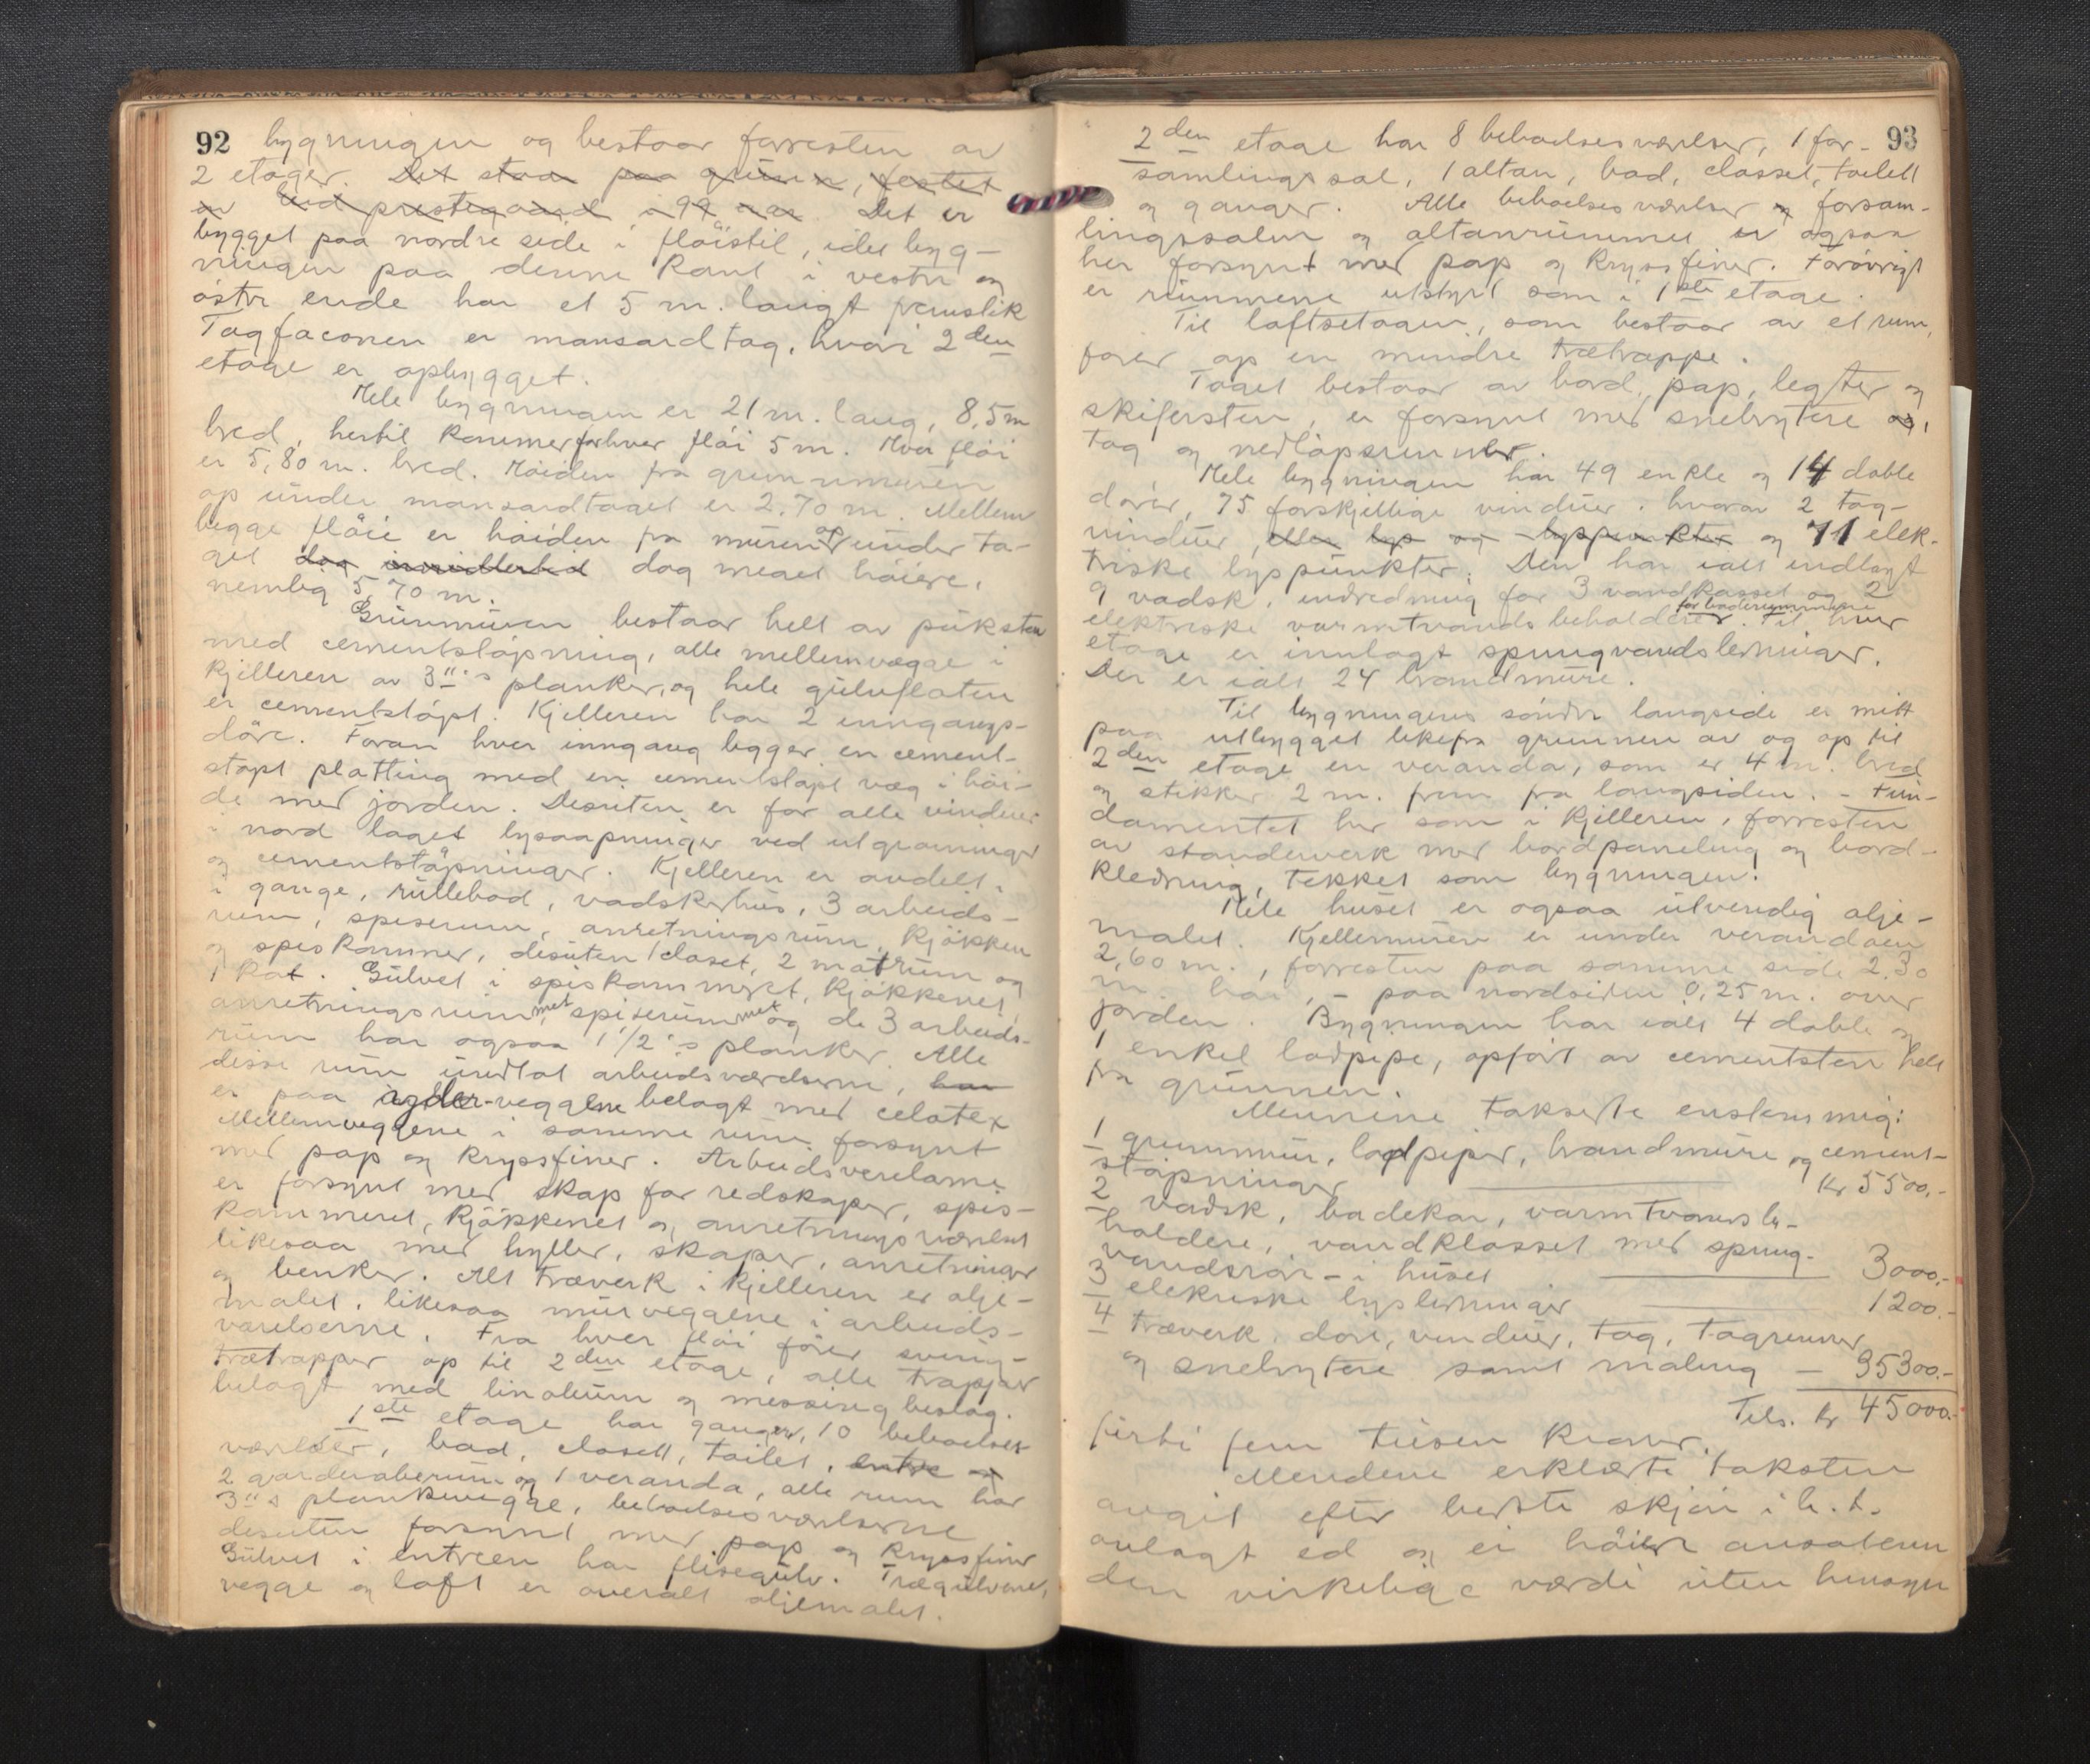 92 bygningen og bestaar forresten av
2 etager. Det staar paa grunn, festet
av Eid prestegaard i 99 aar. Det er
bygget paa nordre side i fløistil, idet byg-
ningen paa denne kant i vestre og
østre ende har et 5 m. langt fremstik
Tagfaconen er mansardtag, hvori 2den
etage er opbygget.
Hele bygningen er 21 m. lang, 8,5 m
bred, hertil kommer for hver fløi 5 m. Hver fløi
er 5,80 m. bred. Høiden fra grunnmuren
op under mansardtaget er 2.70 m. Mellem
begge fløie er høiden fra muren op under ta-
get dog dog meget høiere,
nemlig 5,70 m.
Grunmuren bestaar helt av puksten
med cementstøpning, alle mellemvægge i
kjelleren av 3"s planker, og hele gulvflaten
er cementstøpt. Kjelleren har 2 inngangs-
døre. Foran hver inngang ligger en cement-
støpt platting med en cementstøpt væg i høi-
de med jorden. Desuten er for alle vinduer
i nord laget lysaapninger ved utgravninger
og cementstøpninger. Kjelleren er avdelt
i gange, rullebod, vadskerhus, 3 arbeids-
rum, spiserum, anretningsrum, kjøkken
og spiskammer, desuten 1 closet, 2 matrum og
1 kot. Gulvet i spiskammeret, kjøkkenet,
anretningsrummet, spiserummet og de 3 arbeids-
rum har ogsaa 1 1/2"s planker. Alle
disse rum undtat arbeidsværelserne, har
er paa ytter-veggene belagt med celotex
Mellemveggene i samme rum forsynt
med pap og kryssfiner. Arbeidsverelserne
er forsynt med skap for redskaper, spis-
kammeret, kjøkkenet og anretningsværelset
likesaa med hyller, skaper, anretninger
og benker. Alt træverk i kjelleren er olje-
malet, likesaa murveggene i arbeids-
værelserne. Fra hver fløi fører sving-
trætrapper op til 2den etage, alle trapper
belagt med linoleum og messingbeslag.
1ste etage har ganger, 10 beboelses
værelser, bad, closett, toilet, entre og
2 garderoberum og 1 veranda, alle rum har
3"s plankevegge, beboelsesværelserne
desuten forsynt med pap og kryssfiner
Gulvet i entreen har flisegulv. Trægulvene,
vegge og loft er overalt oljemalet.
93
2den etage har 8 beboelsesværelser, 1 for-
samlingssal, 1 altan, bad, closset, toilett
og ganger. Alle beboelsesværelser og forsam-
lingssalen og altanrummet er ogsaa
her forsynt med pap og kryssfiner. Forøvrigt
er rummene utstyrt som i 1ste etage.
Til loftsetagen, som bestaar av et rum,
fører op en mindre trætrappe.
Taget bestaar av bord, pap, legter og
skifersten, er forsynt med snebrytere og,
tag og nedløpsrenner.
Hele bygningen har 49 enkle og 14 doble
dører, 75 forskjellige vinduer, hvorav 2 tag-
vinduer, og lyspunkter og 71 elek-
triske lyspunkter. Den har ialt indlagt
9 vadsk, indredning for 3 vandklosset og 2
elektriske varmtvandsbeholdere for baderummene. Til hver
etage er innlagt springvandsledninger.
Der er ialt 24 brandmure.
Til bygningens søndre langside er mitt
paa utbygget likefra grunnen av og op til
2den etage en veranda, som er 4 m. bred
og stikker 2 m. frem fra langsiden. - Fun-
damentet her som i kjelleren, forresten
av standerverk med bordpaneling og bord-
kledning, tekket som bygningen.
Hele huset er ogsaa utvendig olje-
malet. Kjellermuren er under verandaen
2,60 m., forresten paa samme side 2.30
m. høi, - paa nordsiden 0,25 m. over
jorden. Bygningen har ialt 4 doble og
1 enkel lodpipe, opført av cementsten helt
fra grunnen.
Mennene takserte enstemmig:
1 grunnmur, lodpiper, brandmure og cement-
støpninger kr 5500,-
2 vadsk, badekar, varmtvannsbe-
holdere, vandklosset med spring-
vandsrør i huset 3000,-
3 elektriske lysledninger 1200.-
4 træverk, døre, vinduer, tag, tagrenner
og snebrytere samt maling - 35300.-
Tils. kr 45000.-
førti fem tusen kroner.
Mendene erklærte taksten
avgit efter bedste skjøn i h.t.
avlagt ed og ei høiere ansat enn
den virkelige værdi uten hensyn